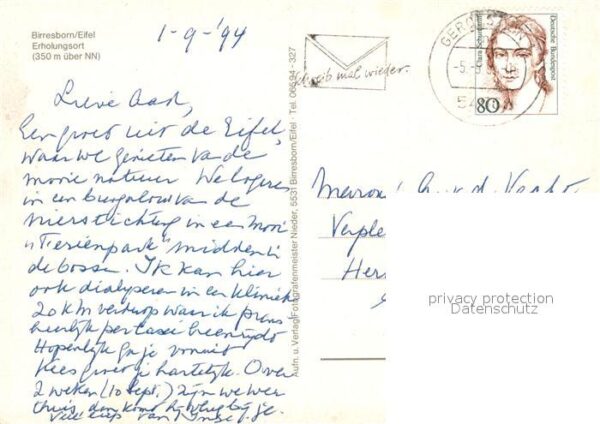 Birresborn/Eifel
Erholungsort
(350 m über NN)
1-9-'94
Lieve Aad,
Een groet uit de Eifel,
waar we genieten va de
mooie natuur We logeren
in een bungalow van de
Nierstichting in een mooi
"Ferienpark" midden i
de bossen. Ik kan hier
ook dialyseren in een kliniek
20 km verderop waar ik
heerlijk per taxi heen
Hopelijk ga je vooruit
Kees groet je hartelijk. Over
2 weken (10 Sept.) zijn we weer
thuis, dan kom je.
Veel liefs van
Aufn. u. Verlag: Fotografenmeister Nieder, 5531 Birresborn/Eifel · Tel. 06594 - 327
Schreib mal wieder.
GEROLSTEIN
54
Clara Schumann
Deutsche Bundespost
80
v. d.
Verple
Her
privacy protection
Datenschutz